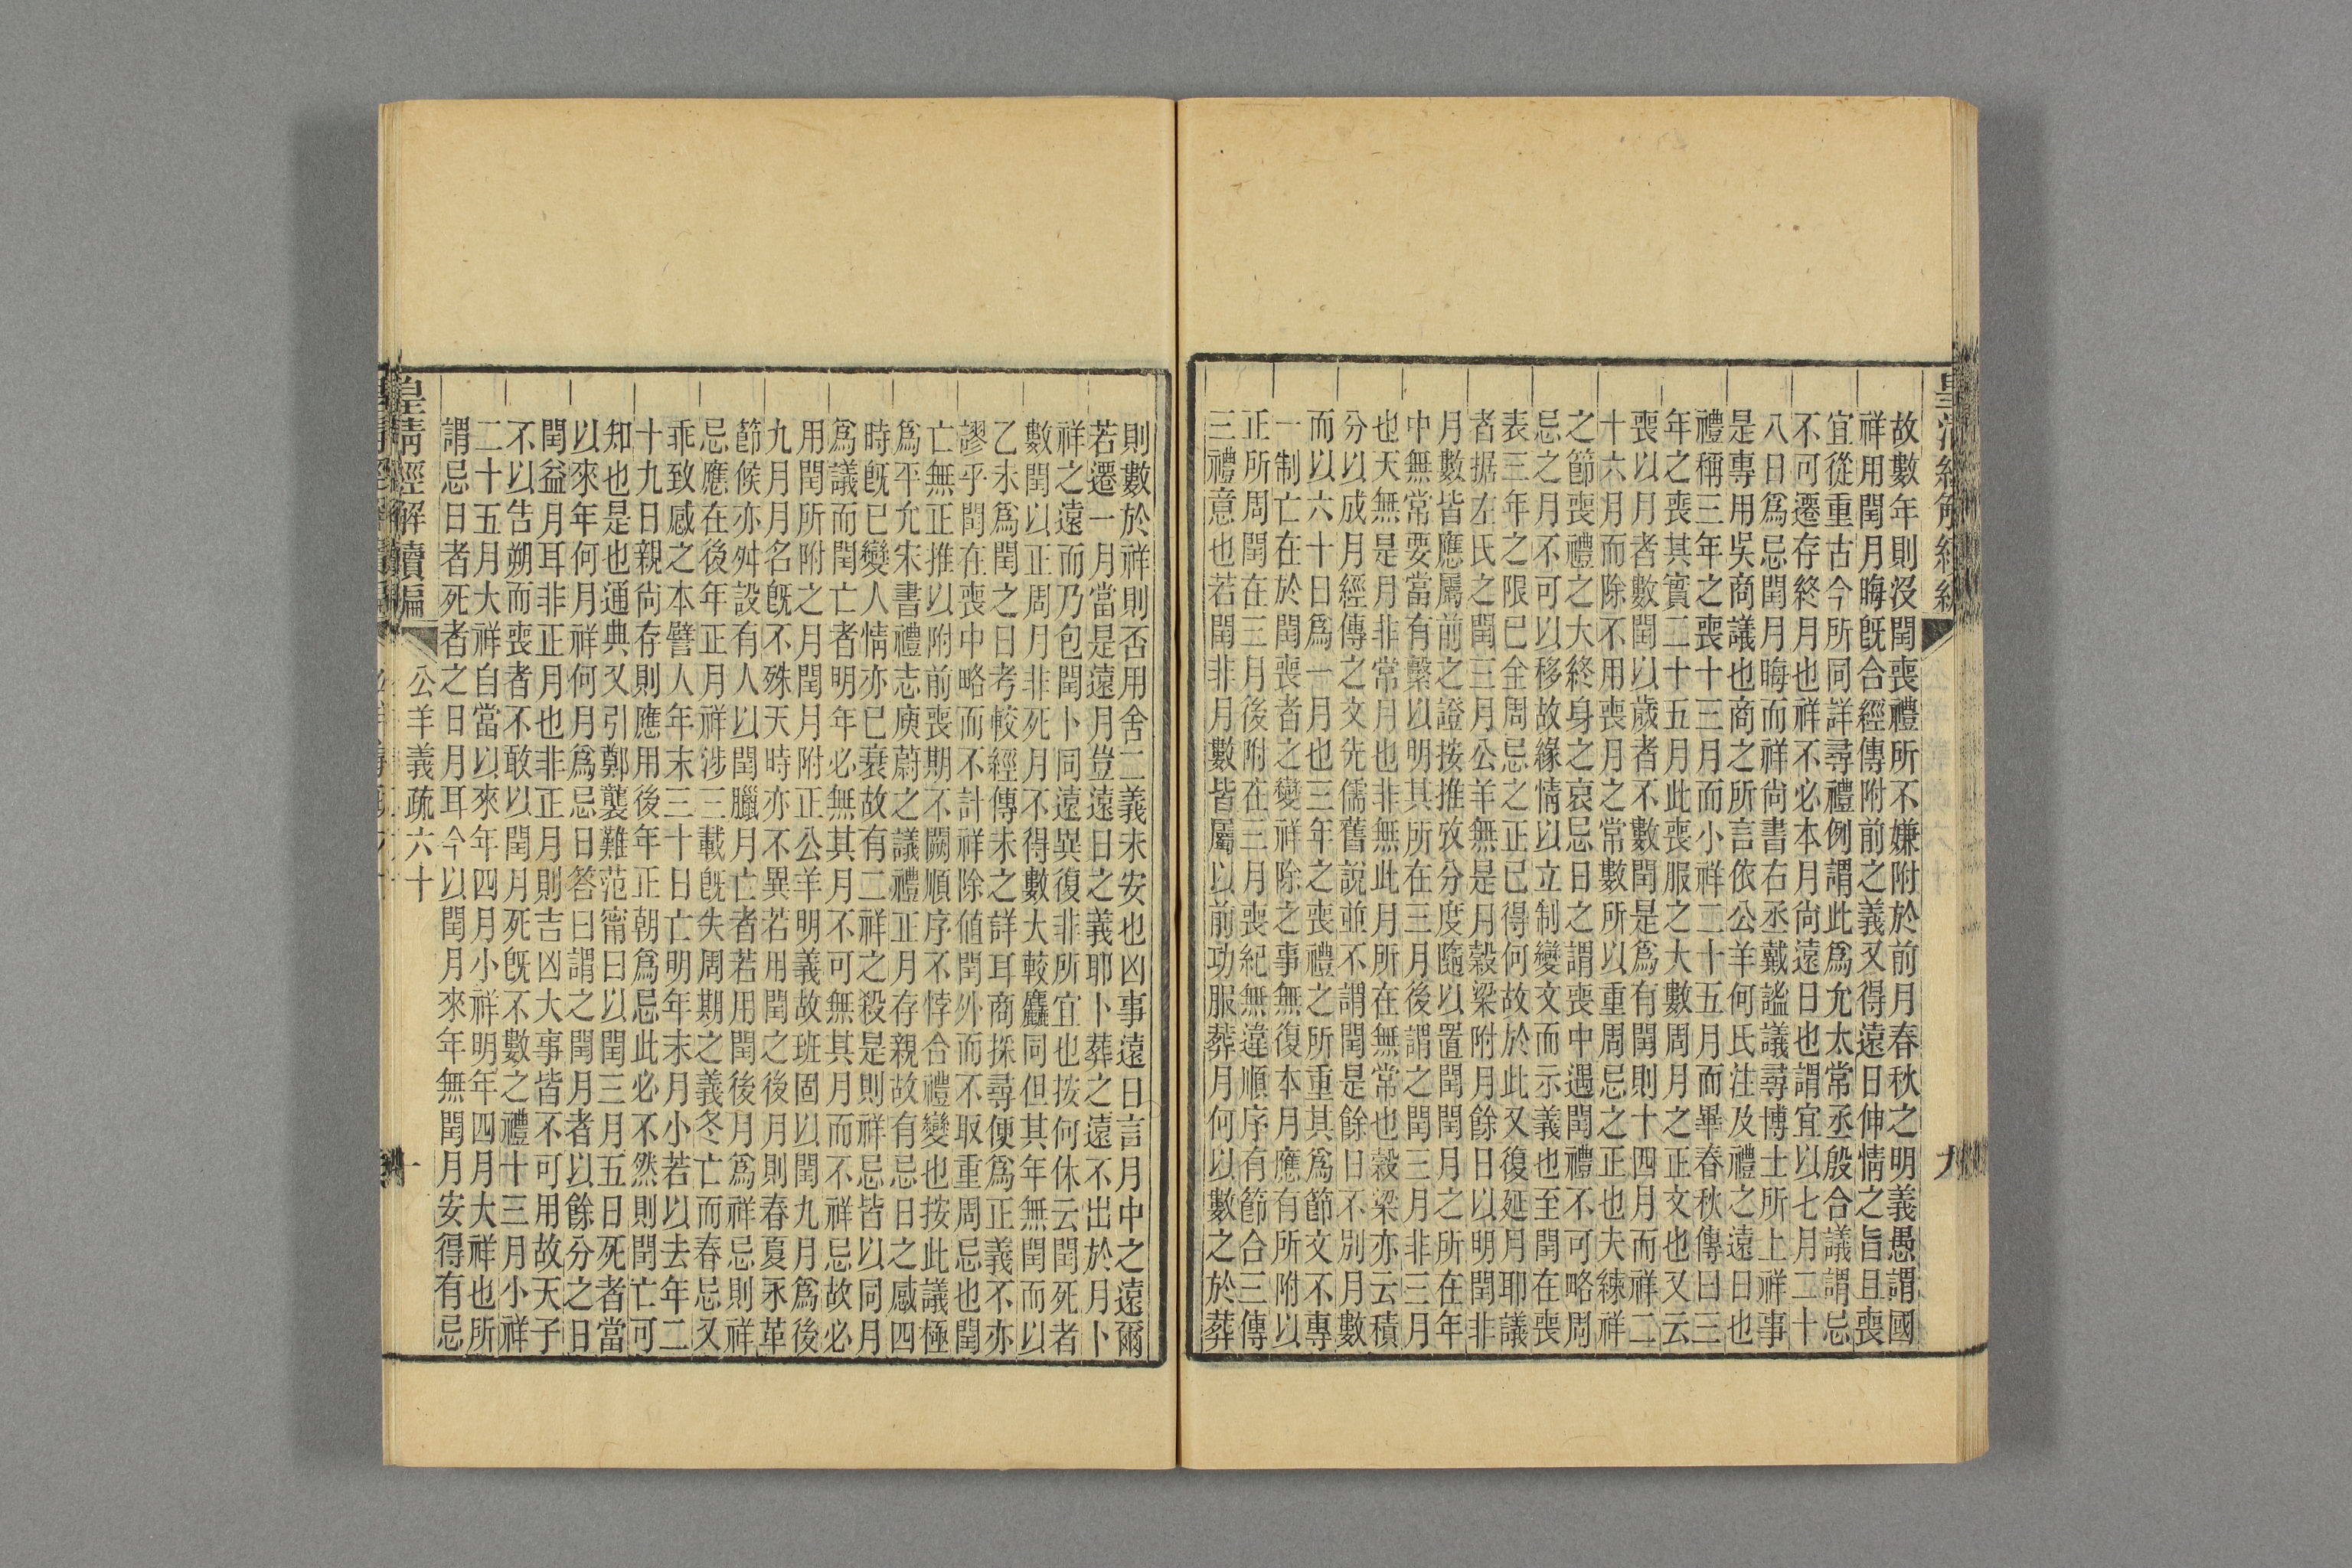 故數年則沒閏喪禮所不嫌附於前月春秋之明義愚謂國
祥用閏月晦旣合經傳附前之義又得遠日伸情之旨且喪
宜從重古今所同詳尋禮例謂此爲允太常丞殷合議謂忌
不可遷存終月也祥不必本月尙遠日也謂宜以七月二十
八日爲忌閏月晦而祥尙書右丞戴謐議尋博士所上祥事
是專用吳商議也商之所言依公羊何氏注及禮之遠日也
禮稱三年之喪十三月而小祥二十五月而畢春秋傳曰三
年之喪其實二十五月此喪服之大數周月之正文也又云
喪以月者數閏以歲者不數閏是爲有閏則十四月而祥二
十六月而除不用喪月之常數所以重周忌之正也夫練祥
之節喪禮之大終身之哀忌日之謂喪中遇閏禮不可略周
忌之月不可以移故緣情以立制變文而示義也至閏在喪
表三年之限已全周忌之正已得何故於此又復延月耶議
者据左氏之閏三月公羊無是月穀梁附月餘日以明閏非
月數皆應屬前之證按推攷分度隨以置閏閏月之所在年
中無常要當有繫以明其所在三月後謂之閏三月非三月
也天無是月非常月也非無此月所在無常也穀梁亦云積
分以成月經傳之文先儒舊說並不謂閏是餘日不別月數
而以六十日爲一月也三年之喪禮之所重其爲節文不專
一制亡在於閏喪者之變祥除之事無復本月應有所附以
正所周閏在三月後附在三月喪紀無違順序有節合三傳
三禮意也若閏非月數皆屬以前功服葬月何以數之於葬
則數於祥則否用舍二義未安也凶事遠日言月中之遠爾
若遷一月當是遠月豈遠日之義耶卜葬之遠不出於月卜
祥之遠而乃包閏卜同遠異復非所宜也按何休云閏死者
數閏以正周月非死月不得數大較麤同但其年無閏而以
乙未爲閏之日考較經傳未之詳耳商採尋便爲正義不亦
謬乎閏在喪中略而不計祥除値閏外而不取重周忌也閏
亡無正推以附前喪期不闕順序不悖合禮變也按此議極
爲平允宋書禮志庾蔚之議禮正月存親故有忌日之感四
時旣已變人情亦已衰故有二祥之殺是則祥忌皆以同月
爲議而閏亡者明年必無其月不可無其月而不祥忌故必
用閏所附之月閏月附正公羊明義故班固以閏九月爲後
九月月名旣不殊天時亦不異若用閏之後月則春夏永革
節候亦舛設有人以閏臘月亡者若用閏後月爲祥忌則祥
忌應在後年正月祥涉三載旣失周期之義冬亡而春忌又
乖致感之本譬人年末三十日亡明年末月小若以去年二
十九日親尙存則應用後年正朝爲忌此必不然則閏亡可
知也是也通典又引鄭襲難范甯曰以閏三月五日死者當
以來年何月祥何月爲忌日答曰謂之閏月者以餘分之日
閏益月耳非正月也非正月則吉凶大事皆不可用故天子
不以告朔而喪者不敢以閏月死旣不數之禮十三月小祥
二十五月大祥自當以來年四月小祥明年四月大祥也所
謂忌日者死者之日月耳今以閏月來年無閏月安得有忌
皇淸經解續編
公羊義疏六十
十